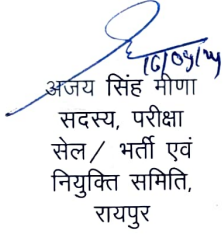 16/09/24
अजय सिंह मीणा
सदस्य, परीक्षा
सेल/ भर्ती एवं
नियुक्ति समिति,
रायपुर